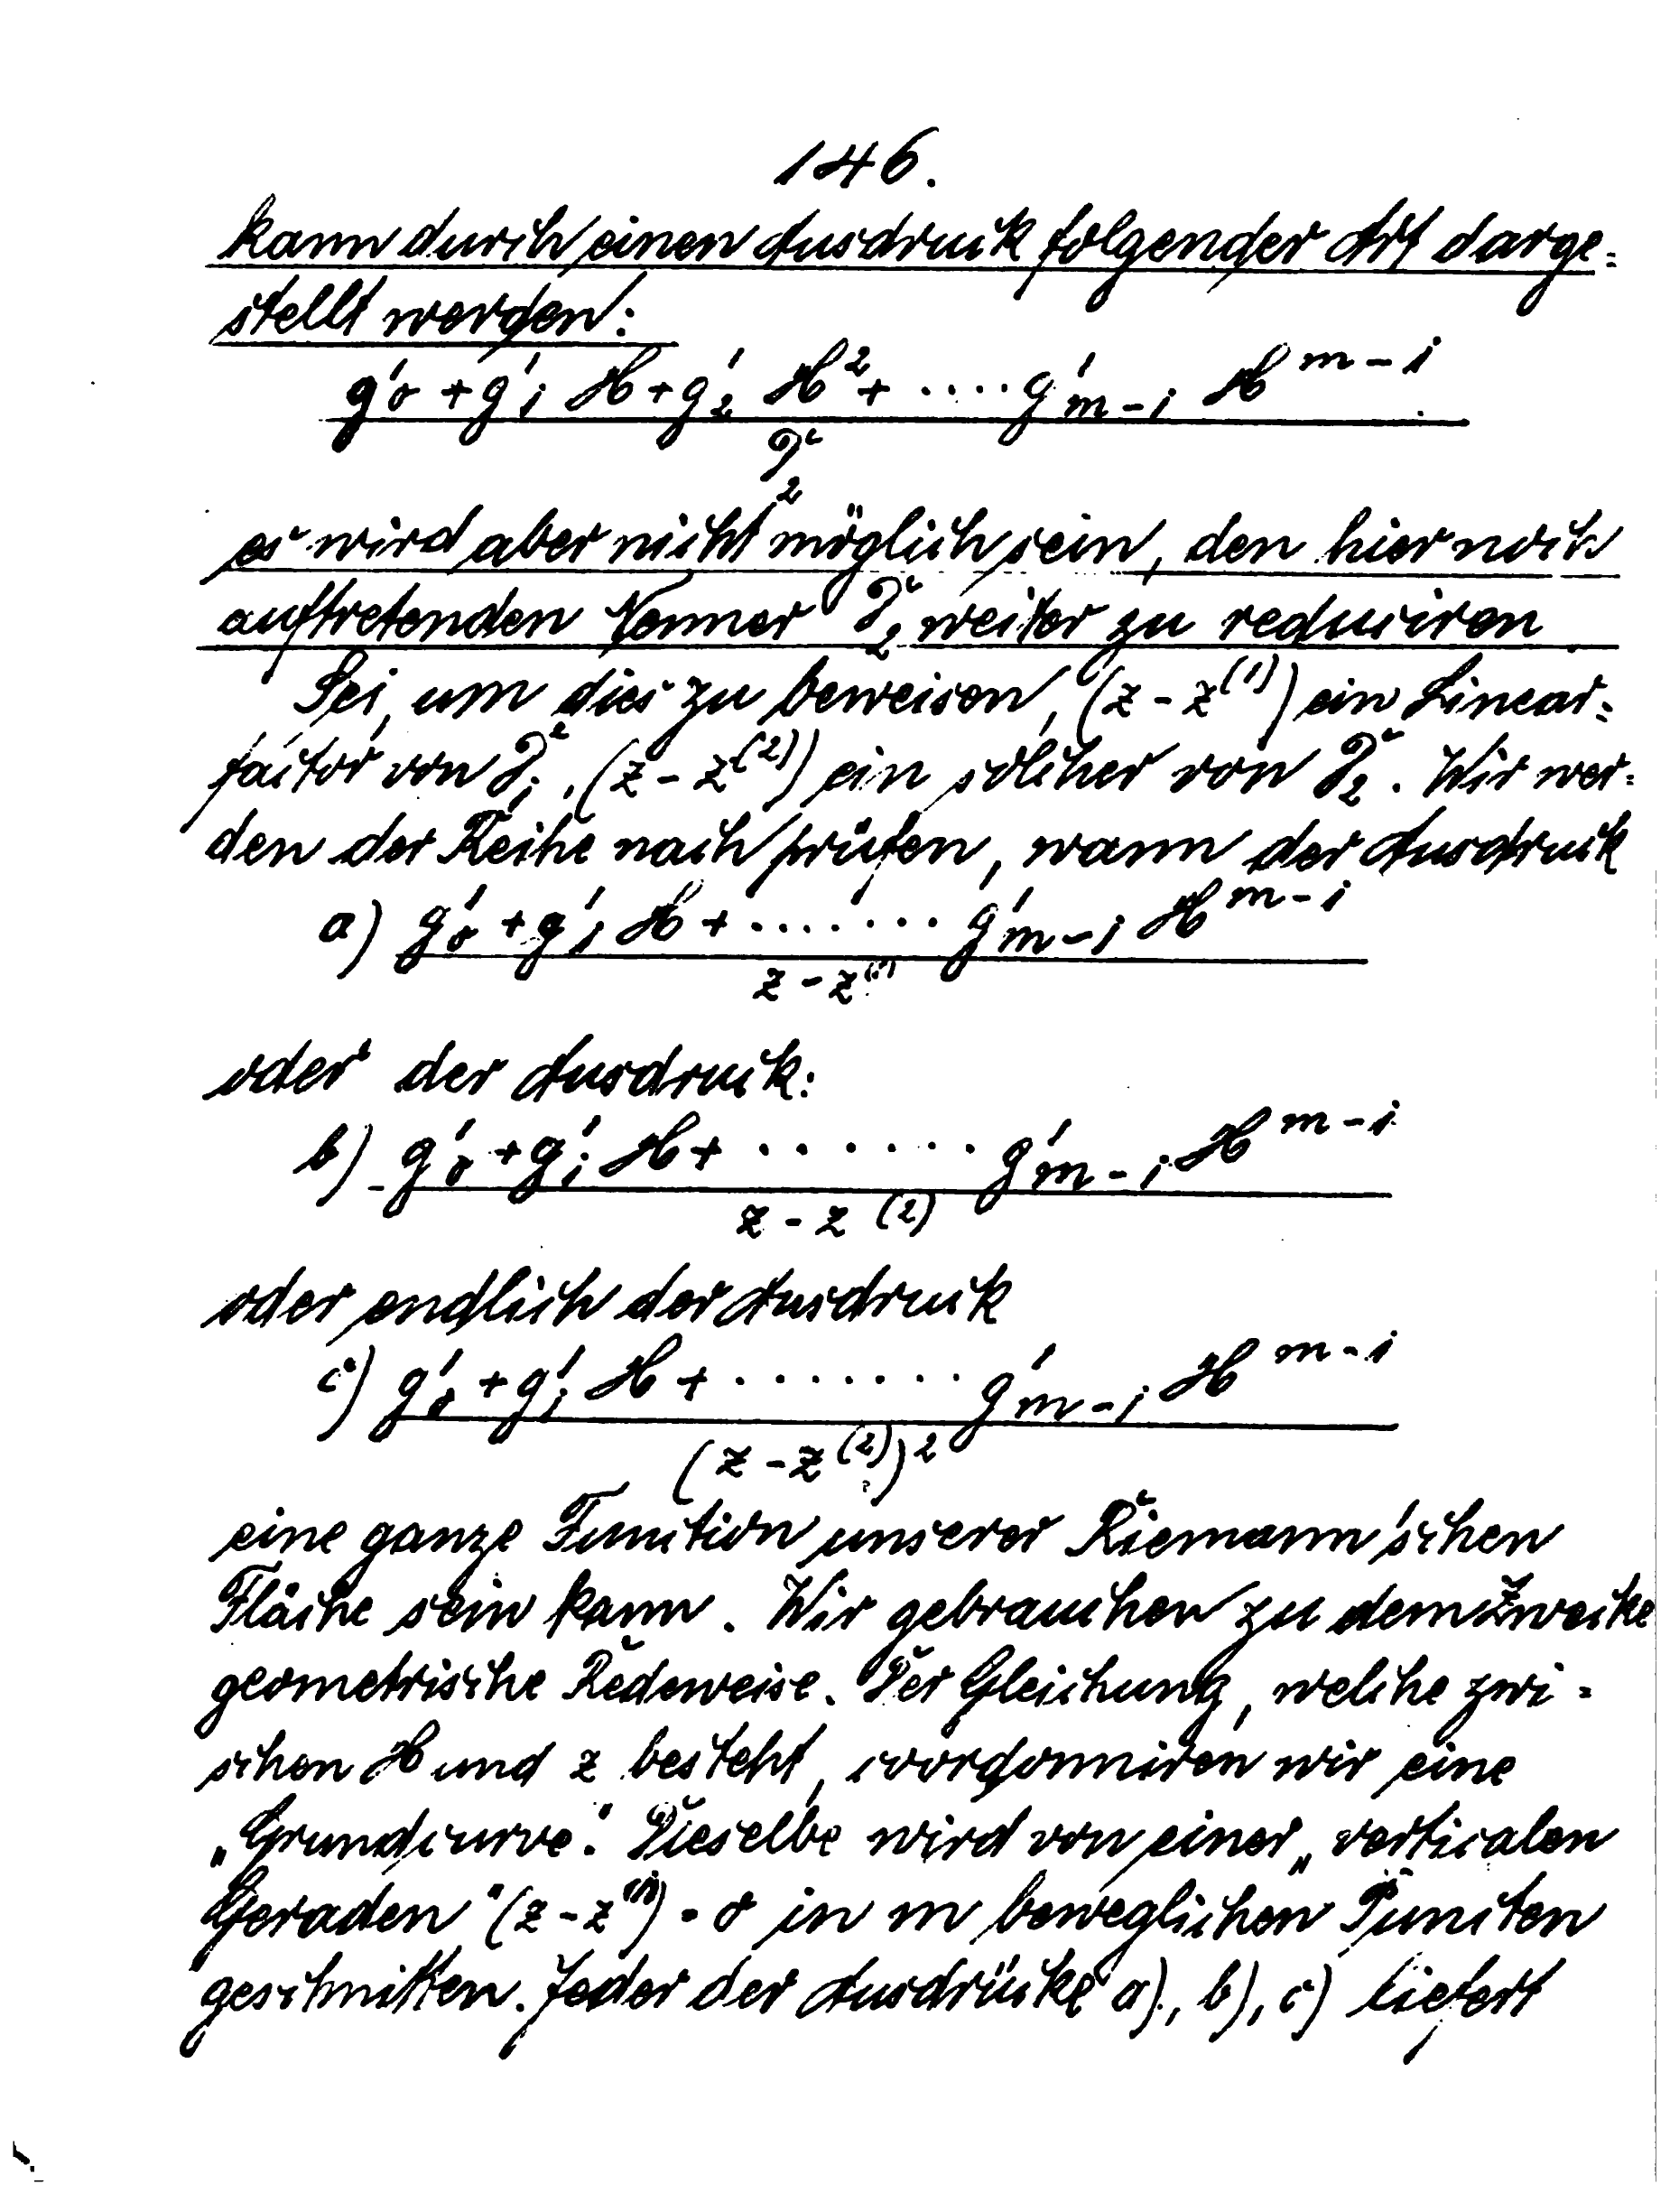 146.
kann durch einen Ausdruck folgender Art darge-
stellt werden:
g'₀ + g'₁ H + g'₂ H² + ···· g'ₘ₋₁ H^{m-1}
T₂
es wird aber nicht möglich sein, den hier noch
auftretenden Nenner T₂ weiter zu reduciren
Sei, um dies zu beweisen, (z - z⁽¹⁾) ein Linear-
factor von T₁, (z - z⁽²⁾) ein solcher von T₂. Wir wer-
den der Reihe nach prüfen, wann der Ausdruck
a) g'₀ + g'₁ H + ········ g'ₘ₋₁ H^{m-1}
z - z⁽¹⁾
oder der Ausdruck:
b) g'₀ + g'₁ H + ······· g'ₘ₋₁ H^{m-1}
z - z⁽²⁾
oder endlich der Ausdruck
c) g'₀ + g'₁ H + ········ g'ₘ₋₁ H^{m-1}
(z - z⁽²⁾)²
eine ganze Function unserer Riemann'schen
Fläche sein kann. Wir gebrauchen zu dem Zwecke
geometrische Redeweise. Der Gleichung, welche zwi-
schen H und z besteht, coordonniren wir eine
„Grundcurve". Dieselbe wird von einer „verticalen
Geraden" (z - z⁽¹⁾) = 0 in m beweglichen Puncten
geschnitten. Jeder der Ausdrücke a), b), c) liefert